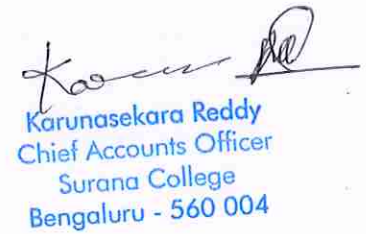 Karunasekara Reddy
Chief Accounts Officer
Surana College
Bengaluru - 560 004